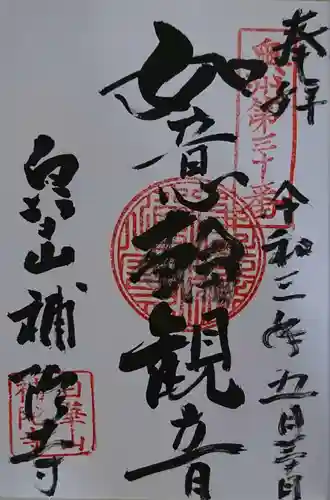 奉拝
奥州第三十番
令和三年五月三日
如意輪観音
白華山補陀寺
白華山
補陀寺